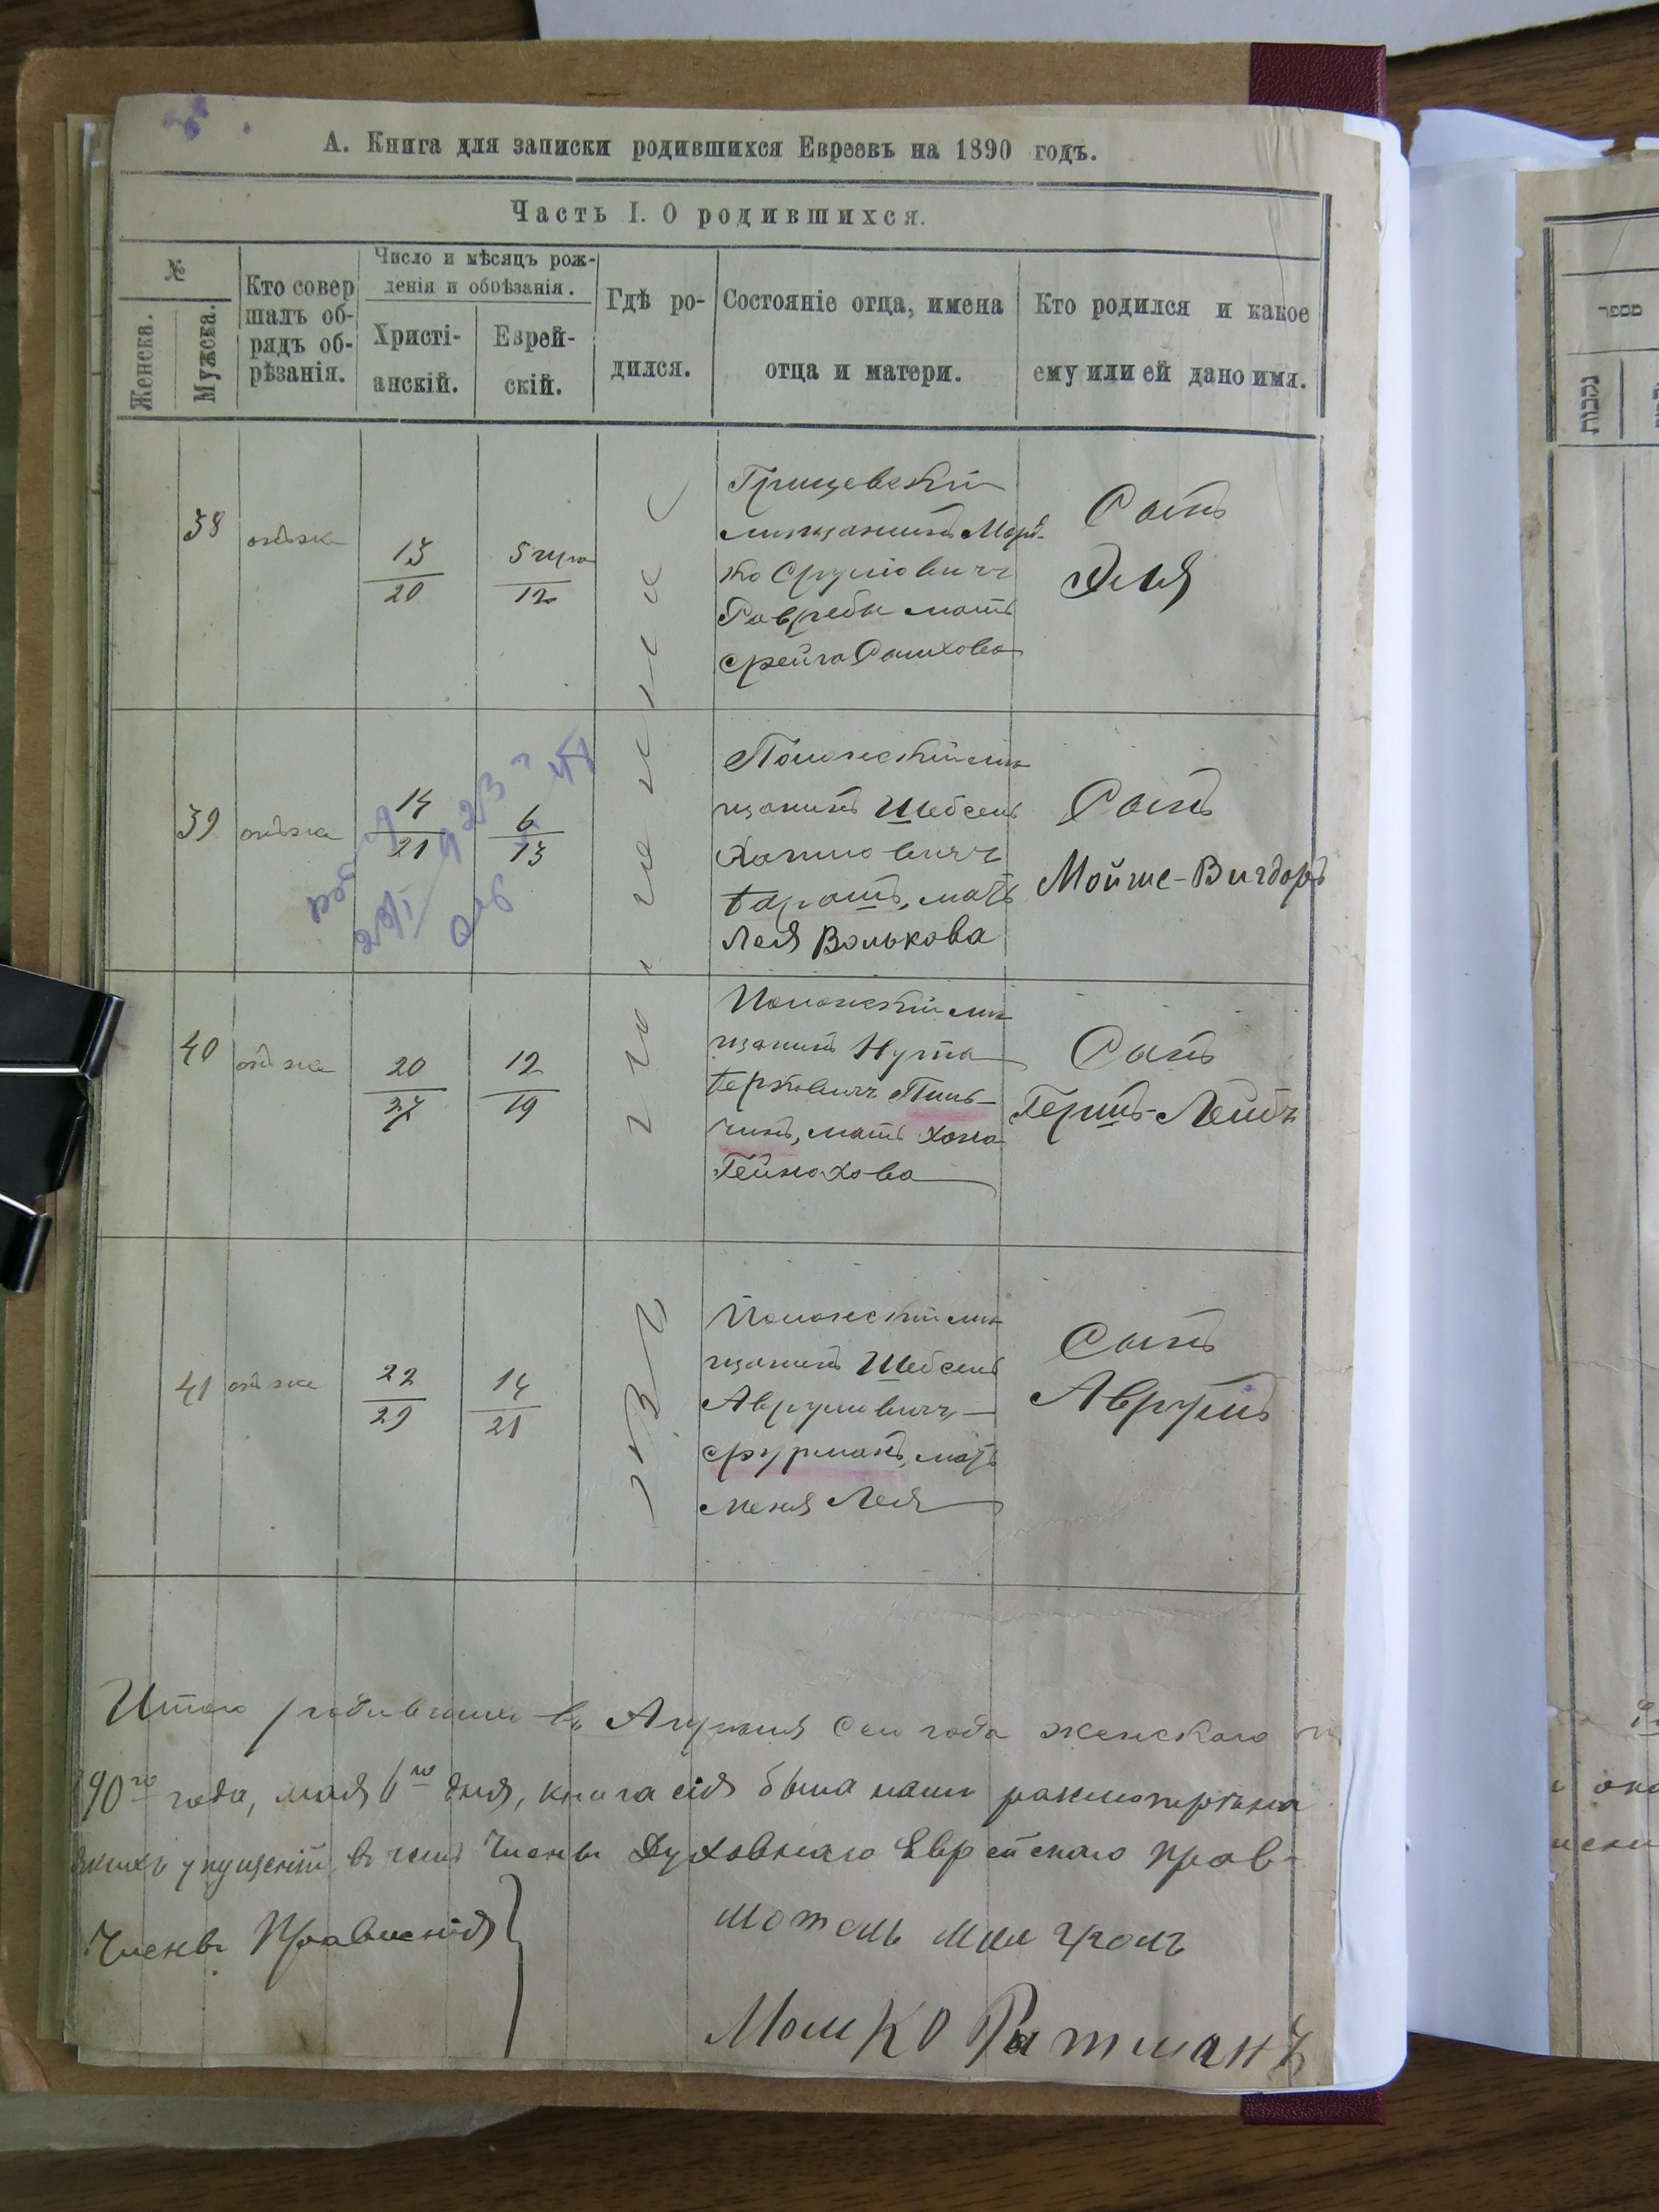 А. Книга для записки родившихся Евреевъ на 1890 годъ.
Часть I. О родившихся.
№
Женска.
Мужска.
Кто совер
шалъ об-
рядъ об-
рѣзанія.
Число и мѣсяцъ рож-
денія и обрѣзанія.
Христі-
анскій.
Еврей-
скій.
Гдѣ ро-
дился.
Состояніе отца, имена
отца и матери.
Кто родился и какое
ему или ей дано имя.
38
13
20
5
12
Грицевскій
мещанинъ Морд-
ко Сруліовичъ
мать
Фейга
Сынъ
Эля
39
14
21
6
13
Полонскій мѣ
щанинъ Шебсель
Хаимовичъ
мать
Лея Волькова
Сынъ
Мойше-Вигдоръ
40
20
27
12
19
Полонскій мѣ
щанинъ Нута
Берковичъ Пинь-
чикъ, мать Хана
Гейнохова
Сынъ
Гершъ-Лейбъ
41
22
29
14
21
Полонскій мѣ
щанинъ Шебсель
Аврумовичъ
Фурманъ, мать
Меня Лея
Сынъ
Аврумъ
Итого родившихся въ Апрѣля сего года женскаго
90го года, мая 6го дня, книга сія была нами разсмотрѣна
упущеній, въ чемъ Члены Духовнаго Еврейскаго Прав-
Члены Правленія
Мотель
Мошко Ратманъ
מספר
נקבות